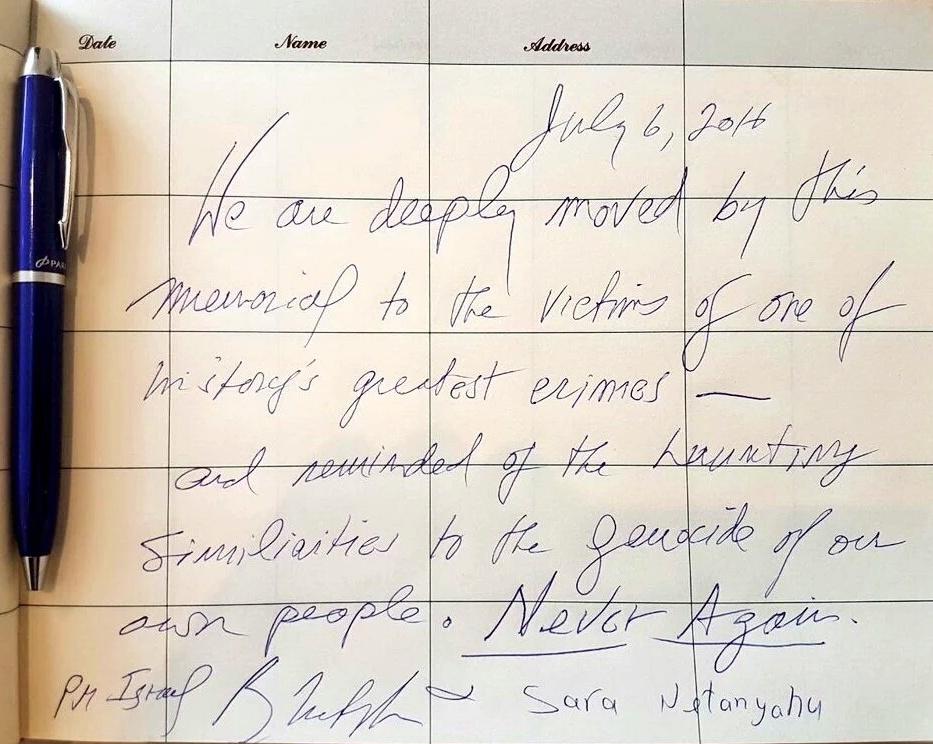 Date Name Address
July 6, 2016
We are deeply moved by this
memorial to the victims of one of
history's greatest crimes —
and reminded of the haunting
similiarities to the genocide of our
own people. Never Again.
PM Israel Sara Netanyahu